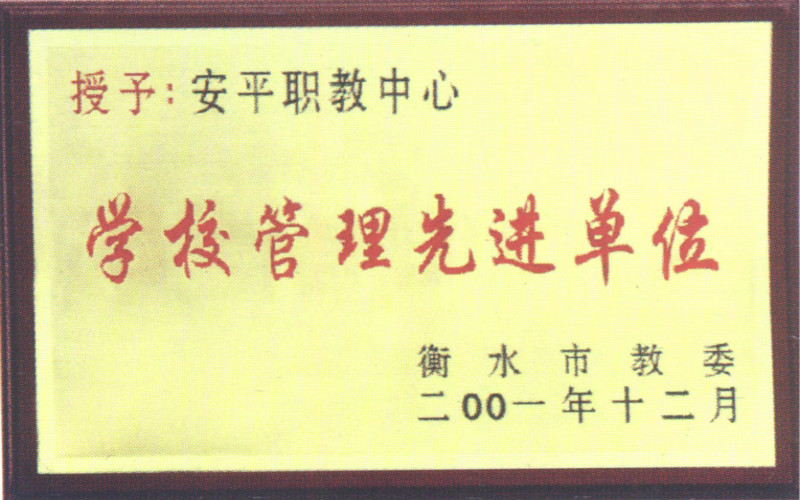 授予:安平职教中心
学校管理先进单位
衡水市教委
二00一年十二月